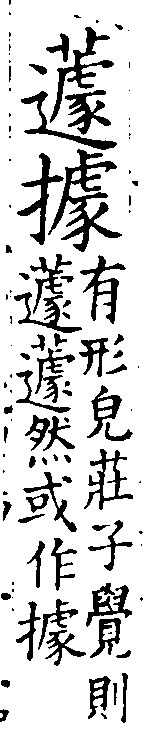 蘧據
有形皃莊子覺則
蘧蘧然或作據